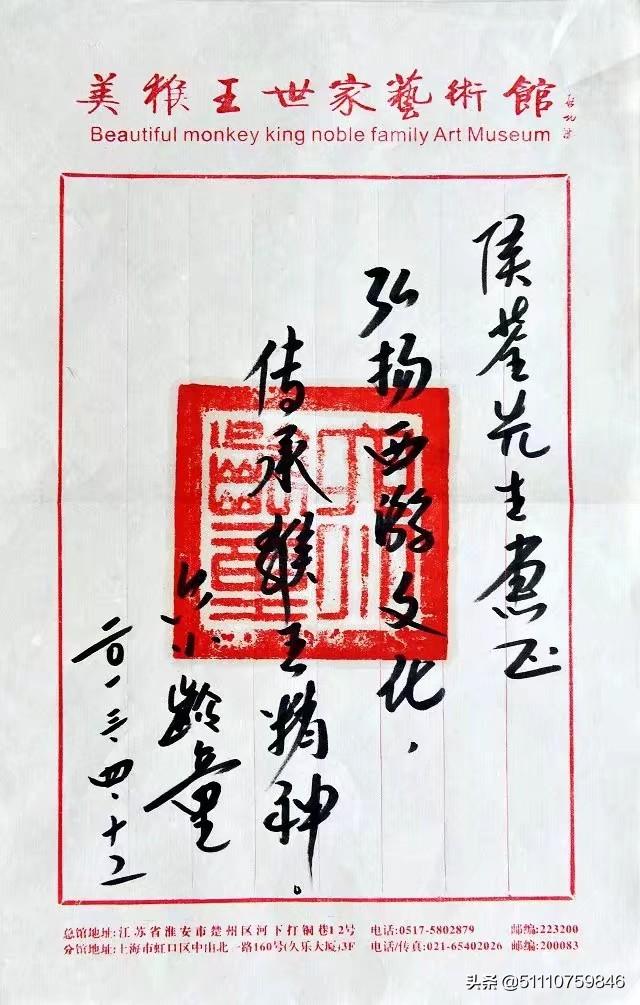 美猴王世家藝術館
Beautiful monkey king noble family Art Museum
侯先生惠正
弘扬西游文化，
传承猴王精神。
六小龄童
二〇一三·四·十二
总馆地址:江苏省淮安市楚州区河下打铜巷12号 电话:0517-5802879 邮编:223200
分馆地址:上海市虹口区中山北一路160号(久乐大厦)3F 电话/传真:021-65402026 邮编:200083
头条 @51110759846